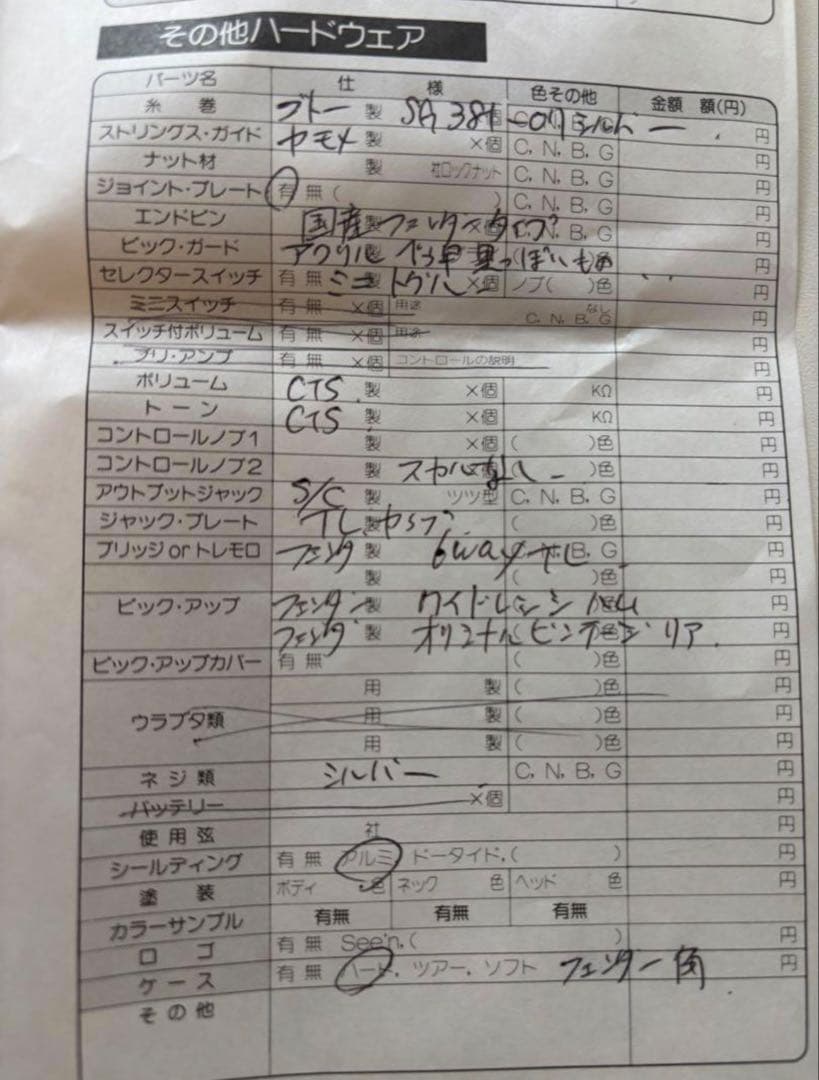 その他ハードウェア
パーツ名 仕様 色その他 金額 額(円)
糸巻 ゴトー 製 SG 381 個 シルバー 円
ストリングス・ガイド カモメ ×個 C, N, B, G 円
ナット材 製 社ロックナット C, N, B, G 円
ジョイント・プレート 有 無 ( ) C, N, B, G 円
エンドピン 国産 製 フェンダータイプ ×個 C, N, B, G 円
ピック・ガード アクリル 製 べっ甲 黒っぽいもの 円
セレクタースイッチ 有 無 ミニ 製 トグル ×個 ノブ( )色 円
ミニスイッチ 有 無 ×個 用途 なし C, N, B, G 円
スイッチ付ボリューム 有 無 ×個 用途 円
プリ・アンプ 有 無 ×個 コントロールの説明 円
ボリューム CTS 製 ×個 KΩ 円
トーン CTS 製 ×個 KΩ 円
コントロールノブ1 製 ×個 ( )色 円
コントロールノブ2 製 ( )色 円
アウトプットジャック S/C 製 ツツ型 C, N, B, G 円
ジャック・プレート TL 製 ( )色 円
ブリッジorトレモロ フェンダー 製 6way TL B, G 円
製 ( )色 円
ピック・アップ フェンダー 製 ワイドレンジ ハム 円
フェンダー 製 オリジナルビンテージ リア 円
ピック・アップカバー 有 無 ( )色 円
用 製 ( )色 円
ウラブタ類 用 製 ( )色 円
用 製 ( )色 円
ネジ類 シルバー C, N, B, G 円
バッテリー ×個 円
使用弦 社 円
シールディング 有 無 アルミ ドータイド, ( ) 円
塗装 ボディ 色 ネック 色 ヘッド 色 円
カラーサンプル 有無 有無 有無
ロゴ 有 無 See'n, ( ) 円
ケース 有 無 ハード, ツアー, ソフト フェンダー 角 円
その他